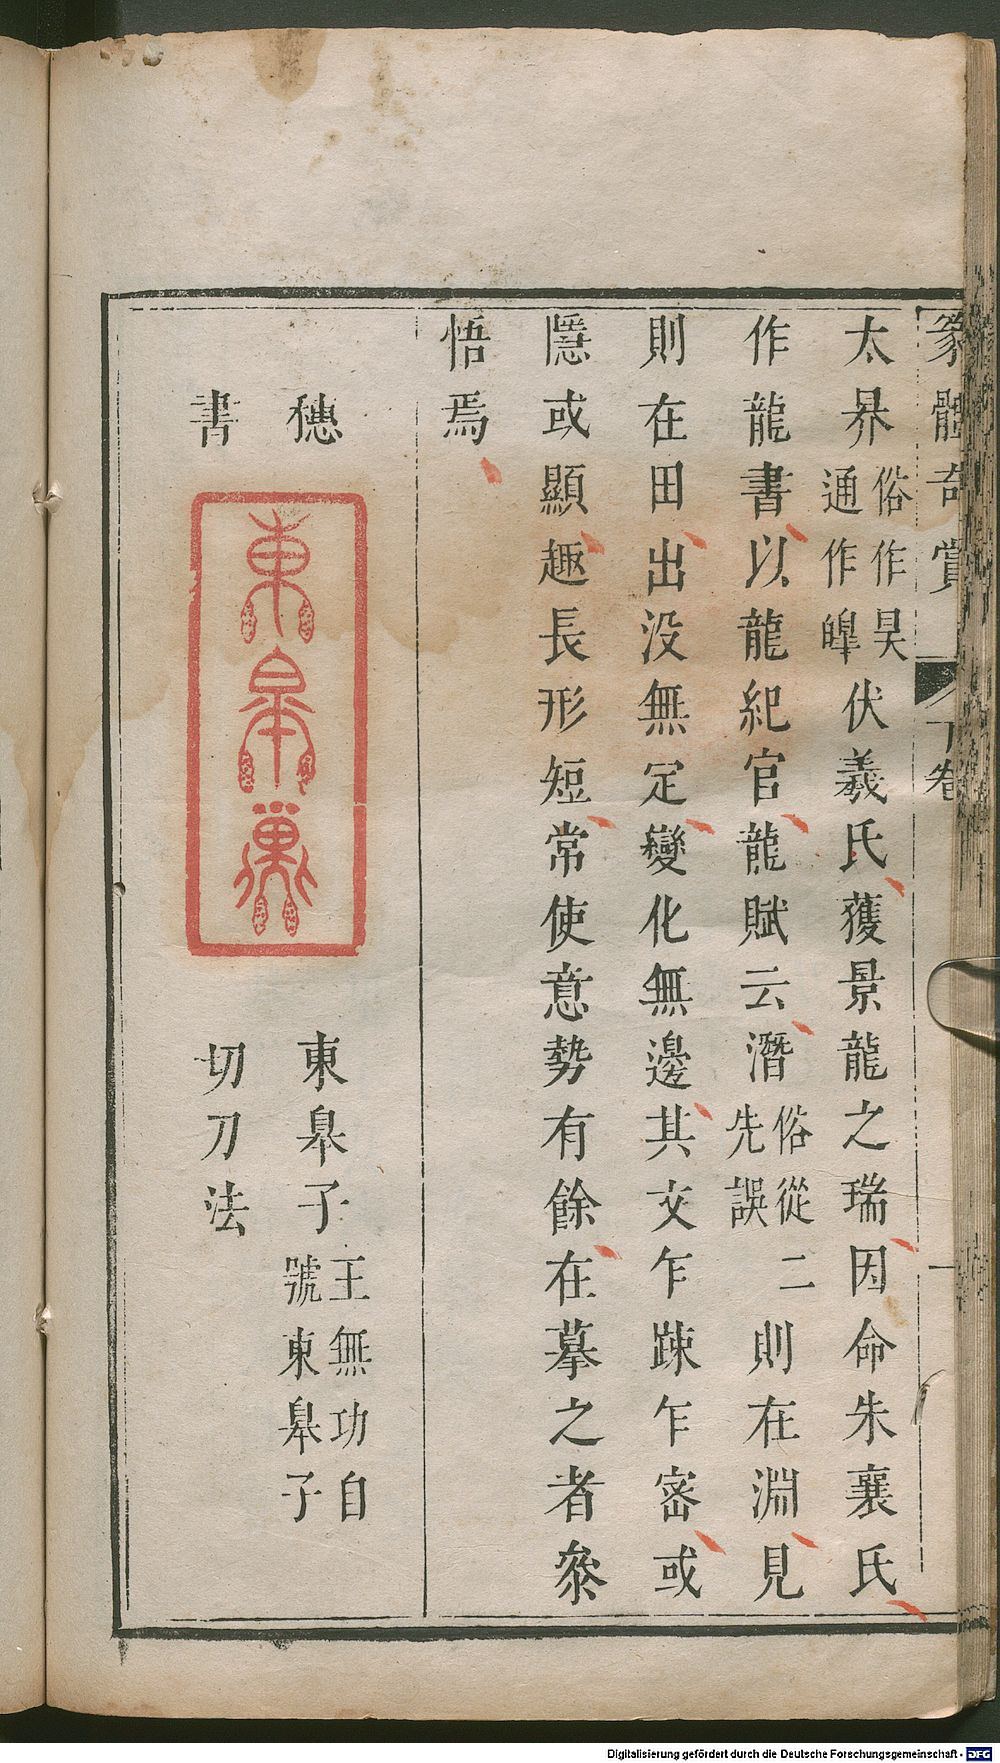 篆體奇賞 下卷 一
太昦俗作昊通作皥伏羲氏獲景龍之瑞因命朱襄氏
作龍書以龍紀官龍賦云潛俗從二先誤則在淵見
則在田出沒無定變化無邊其文乍疎乍密或
隱或顯趣長形短常使意勢有餘在摹之者叅
悟焉
穗書
東皐巢
東皐子王無功自號東皐子
切刀法
Digitalisierung gefördert durch die Deutsche Forschungsgemeinschaft - DFG